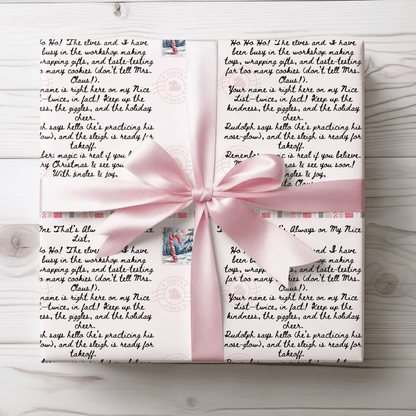 Ho Ho! The elves and I have
been busy in the workshop making
toys, wrapping gifts, and taste-testing
far too many cookies (don't tell Mrs.
Claus!).
name is right here on my Nice
List—twice, in fact! Keep up the
kindness, the giggles, and the holiday
cheer.
Rudolph says hello (he's practicing his
nose-glow), and the sleigh is ready for
takeoff.
magic is real if you
Christmas & see you
With jingles & joy,
Ho Ho Ho! The elves and I have
been busy in the workshop making
toys, wrapping gifts, and taste-testing
far too many cookies (don't tell Mrs.
Claus!).
Your name is right here on my Nice
List—twice, in fact! Keep up the
kindness, the giggles, and the holiday
cheer.
Rudolph says hello (he's practicing his
nose-glow), and the sleigh is ready for
takeoff.
magic is real if you believe.
Christmas & see you soon!
jingles & joy,
Claus
One That's Alw
List,
Ho! The elves and I have
been busy in the workshop making
wrapping gifts, and taste-testing
far too many cookies (don't tell Mrs.
Claus!).
name is right here on my Nice
List—twice, in fact! Keep up the
kindness, the giggles, and the holiday
cheer.
says hello (he's practicing his
nose-glow), and the sleigh is ready for
takeoff.
Always on My Nice
Ho Ho Ho! The elves and I have
been busy in the workshop making
toys, wrapping gifts, and taste-testing
far too many cookies (don't tell Mrs.
Claus!).
Your name is right here on my Nice
List—twice, in fact! Keep up the
kindness, the giggles, and the holiday
cheer.
Rudolph says hello (he's practicing his
nose-glow), and the sleigh is ready for
takeoff.